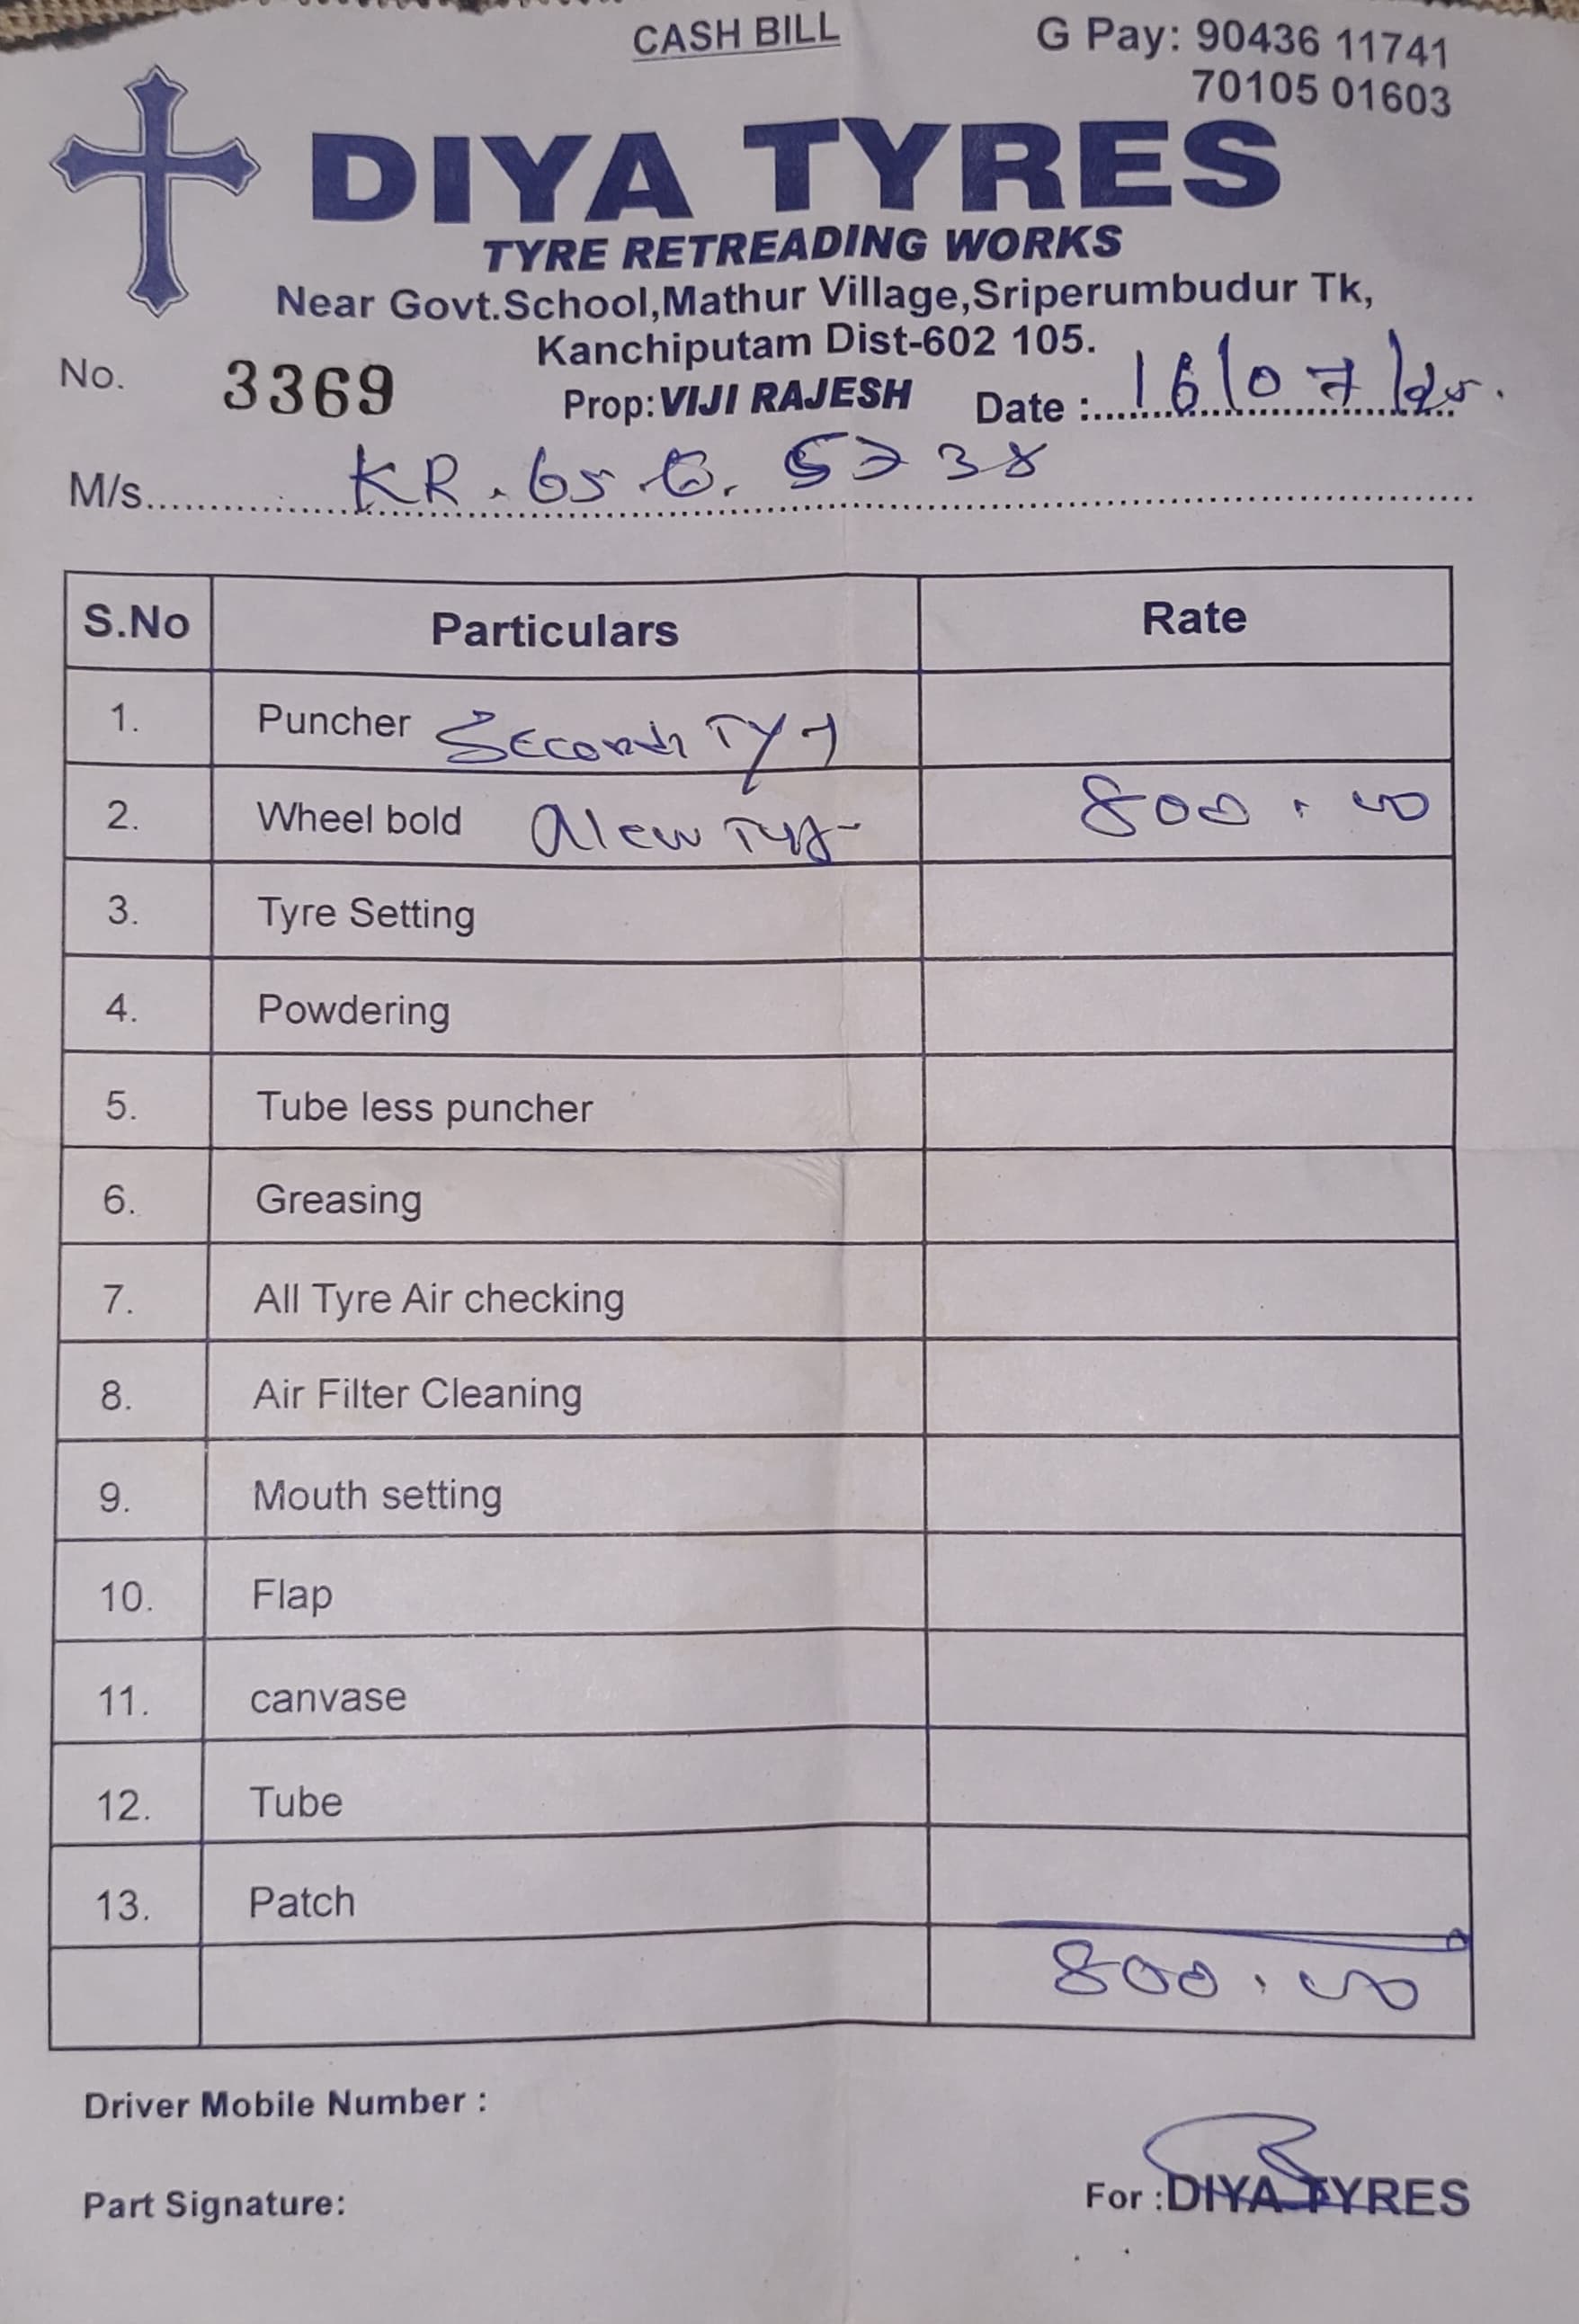 CASH BILL
G Pay: 90436 11741
70105 01603
DIYA TYRES
TYRE RETREADING WORKS
Near Govt.School,Mathur Village,Sriperumbudur Tk,
Kanchiputam Dist-602 105.
No. 3369 Prop:VIJI RAJESH Date : 16/07/25.
M/s. KR. 65
S.No Particulars Rate
1. Puncher
2. Wheel bold New 800.00
3. Tyre Setting
4. Powdering
5. Tube less puncher
6. Greasing
7. All Tyre Air checking
8. Air Filter Cleaning
9. Mouth setting
10. Flap
11. canvase
12. Tube
13. Patch
800.00
Driver Mobile Number :
Part Signature:
For :DIYA TYRES